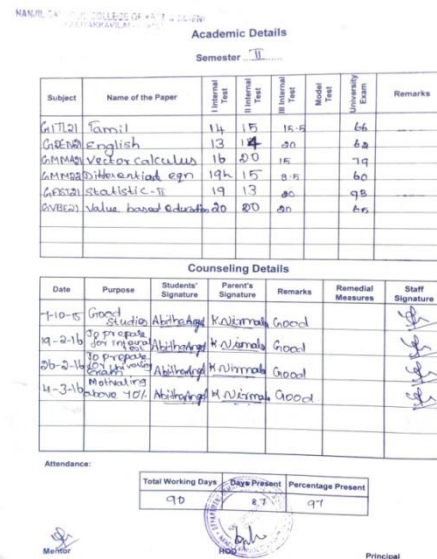 COLLEGE OF
Academic Details
Semester II
Subject Name of the Paper I Internal Test II Internal Test III Internal Test Model Test University Exam Remarks
Tamil 14 15 15.5 66
English 13 14 20 62
Vector calculus 16 20 15 79
Differential eqn 19½ 15 8.5 60
Statistic-II 19 13 20 98
GVBE21 Value based education 20 20 20 65
Counseling Details
Date Purpose Students' Signature Parent's Signature Remarks Remedial Measures Staff Signature
7-10-15 Good studies K.Nirmala Good
19-2-16 To prepare for internal test K.Nirmala Good
26-2-16 To prepare for university exam K.Nirmala Good
4-3-16 Motivating above 70% K.Nirmala Good
Attendance:
Total Working Days Days Present Percentage Present
90 87 97
Mentor HOD Principal